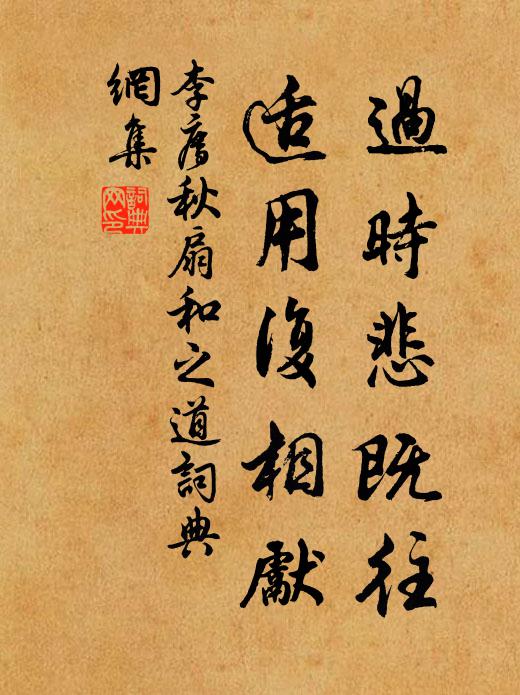 過時悲既往
适用復相獻
李廌秋扇和之道詞典
網集
詞典网印